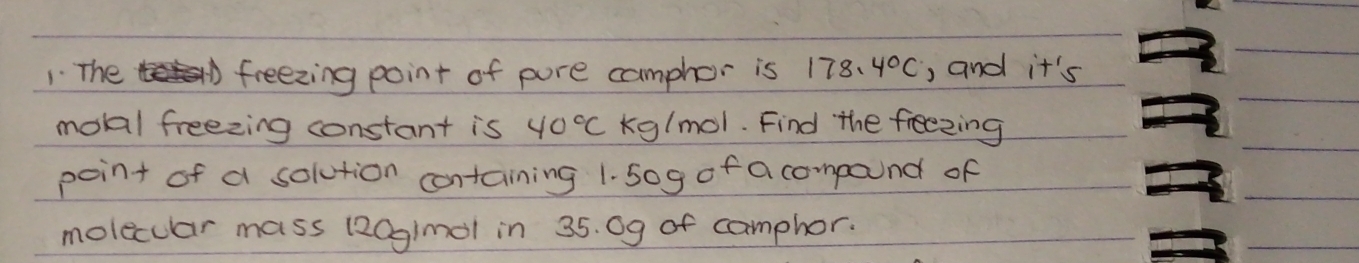 1. The freezing point of pure camphor is 178.4°C, and it's
molal freezing constant is 40°C kg/mol. Find the freezing
point of a solution containing 1.50g of a compound of
molecular mass 120g/mol in 35.0g of camphor.